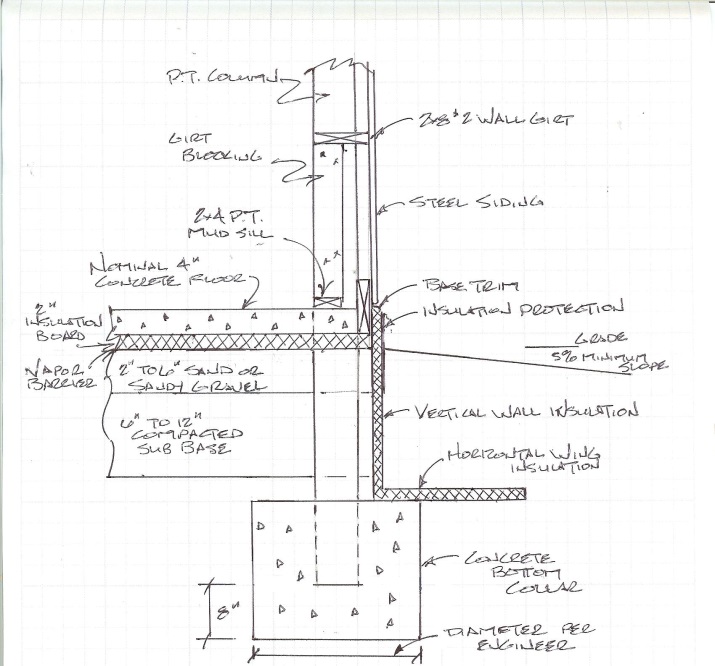 P.T. COLUMN
2x8 #2 WALL GIRT
GIRT
BLOCKING
STEEL SIDING
2x4 P.T.
MUD SILL
NOMINAL 4"
CONCRETE FLOOR
BASE TRIM
INSULATION PROTECTION
2"
INSULATION
BOARD
GRADE
5% MINIMUM
SLOPE
VAPOR
BARRIER
2" TO 6" SAND OR
SANDY GRAVEL
6" TO 12"
COMPACTED
SUB BASE
VERTICAL WALL INSULATION
HORIZONTAL WING
INSULATION
CONCRETE
BOTTOM
COLLAR
8"
DIAMETER PER
ENGINEER